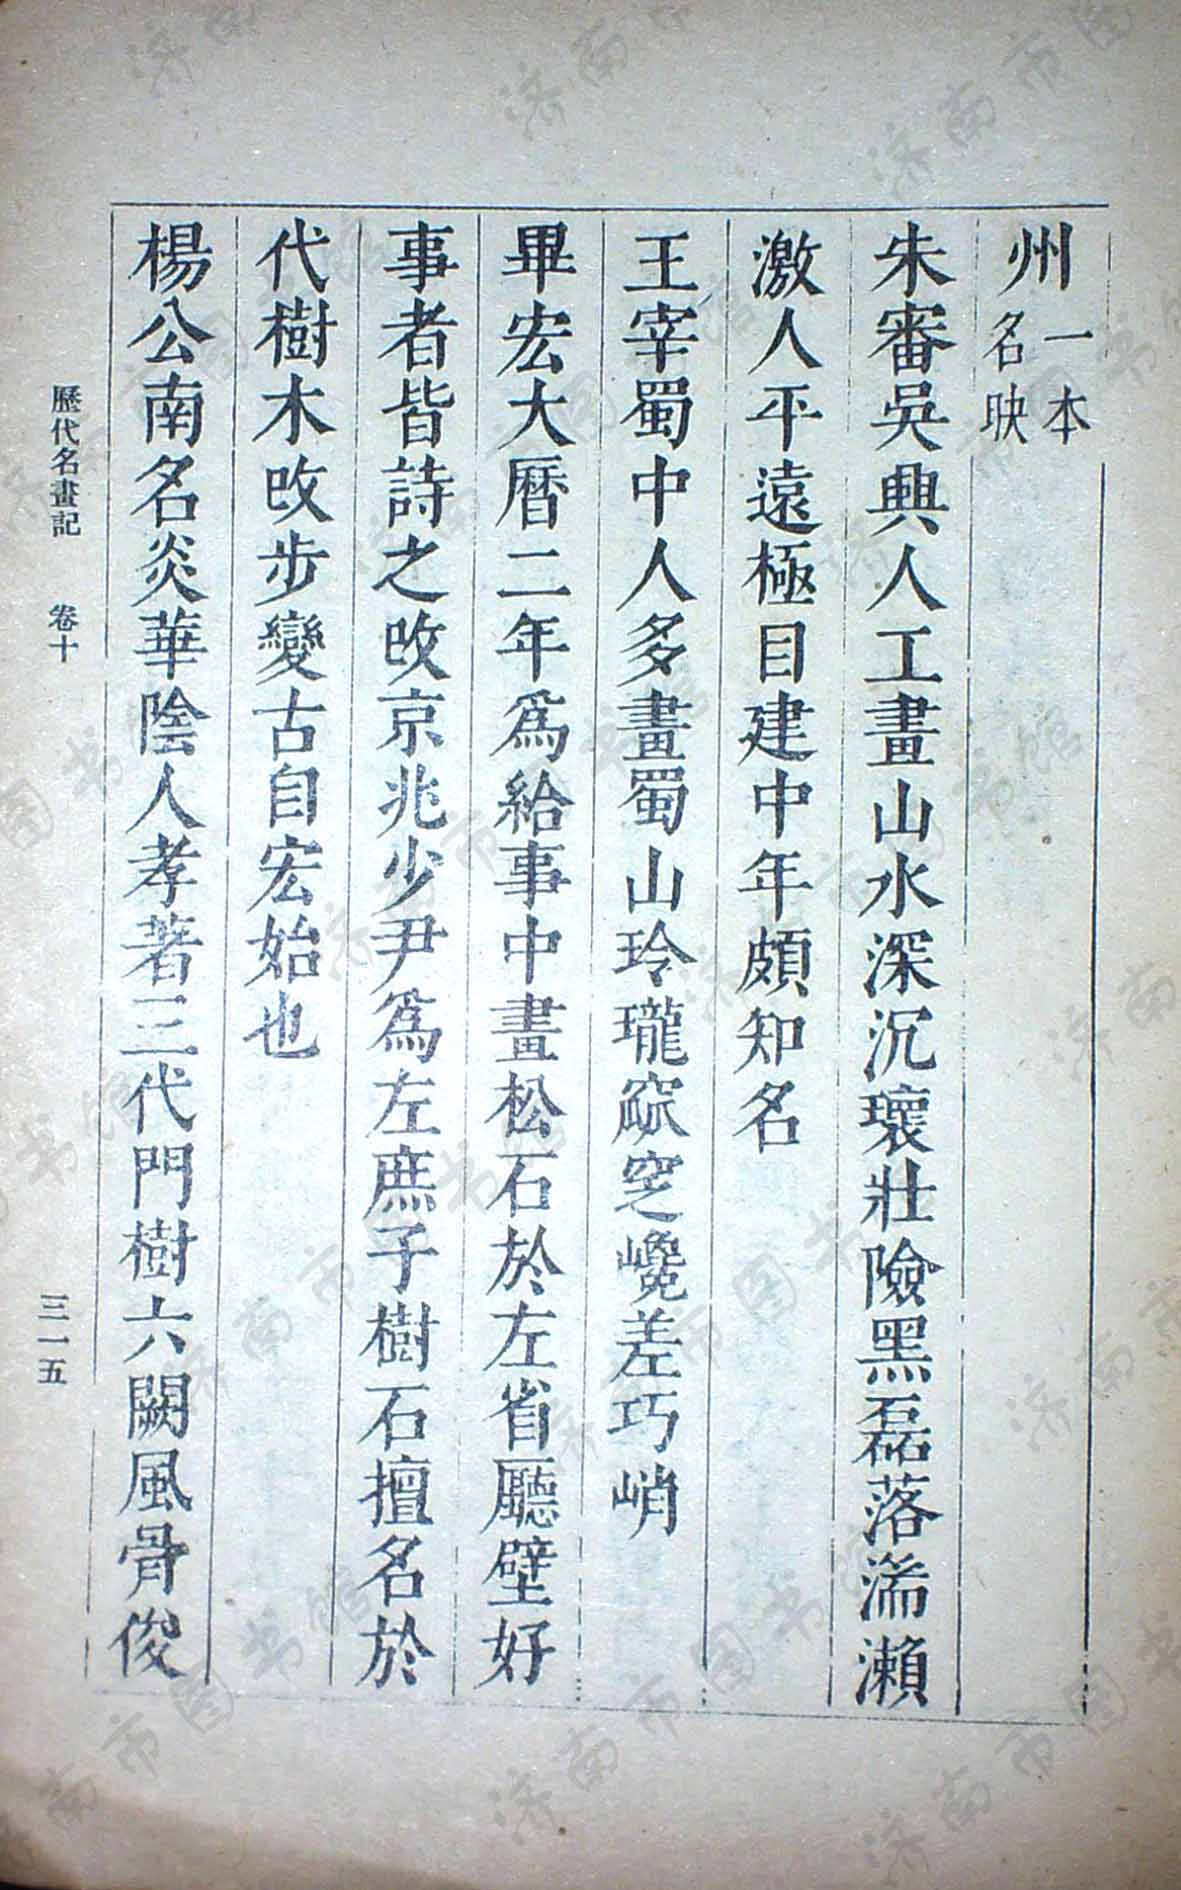 州一本名映
朱審吳興人工畫山水深沉瓌壯險黑磊落湍瀨
激人平遠極目建中年頗知名
王宰蜀中人多畫蜀山玲瓏窳窆巉差巧峭
畢宏大曆二年爲給事中畫松石於左省廳壁好
事者皆詩之改京兆少尹爲左庶子樹石擅名於
代樹木改步變古自宏始也
楊公南名炎華陰人孝著三代門樹六闕風骨俊
歷代名畫記 卷十 三一五
济南市图书馆